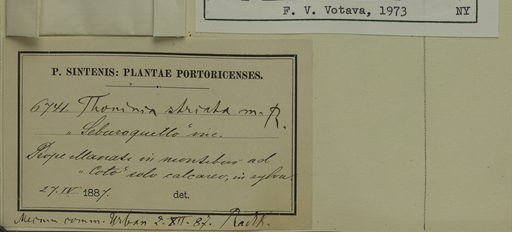 F. V. Votava, 1973 NY
P. SINTENIS: PLANTAE PORTORICENSES.
6741. Thouinia striata m. R.
"Seburoquello" inc.
Prope Manati in montibus ad
"Coto" solo calcareo, in sylva
27. IV. 1887. det.
Mecum comm. Urban 2. XII. 87. Radlk.